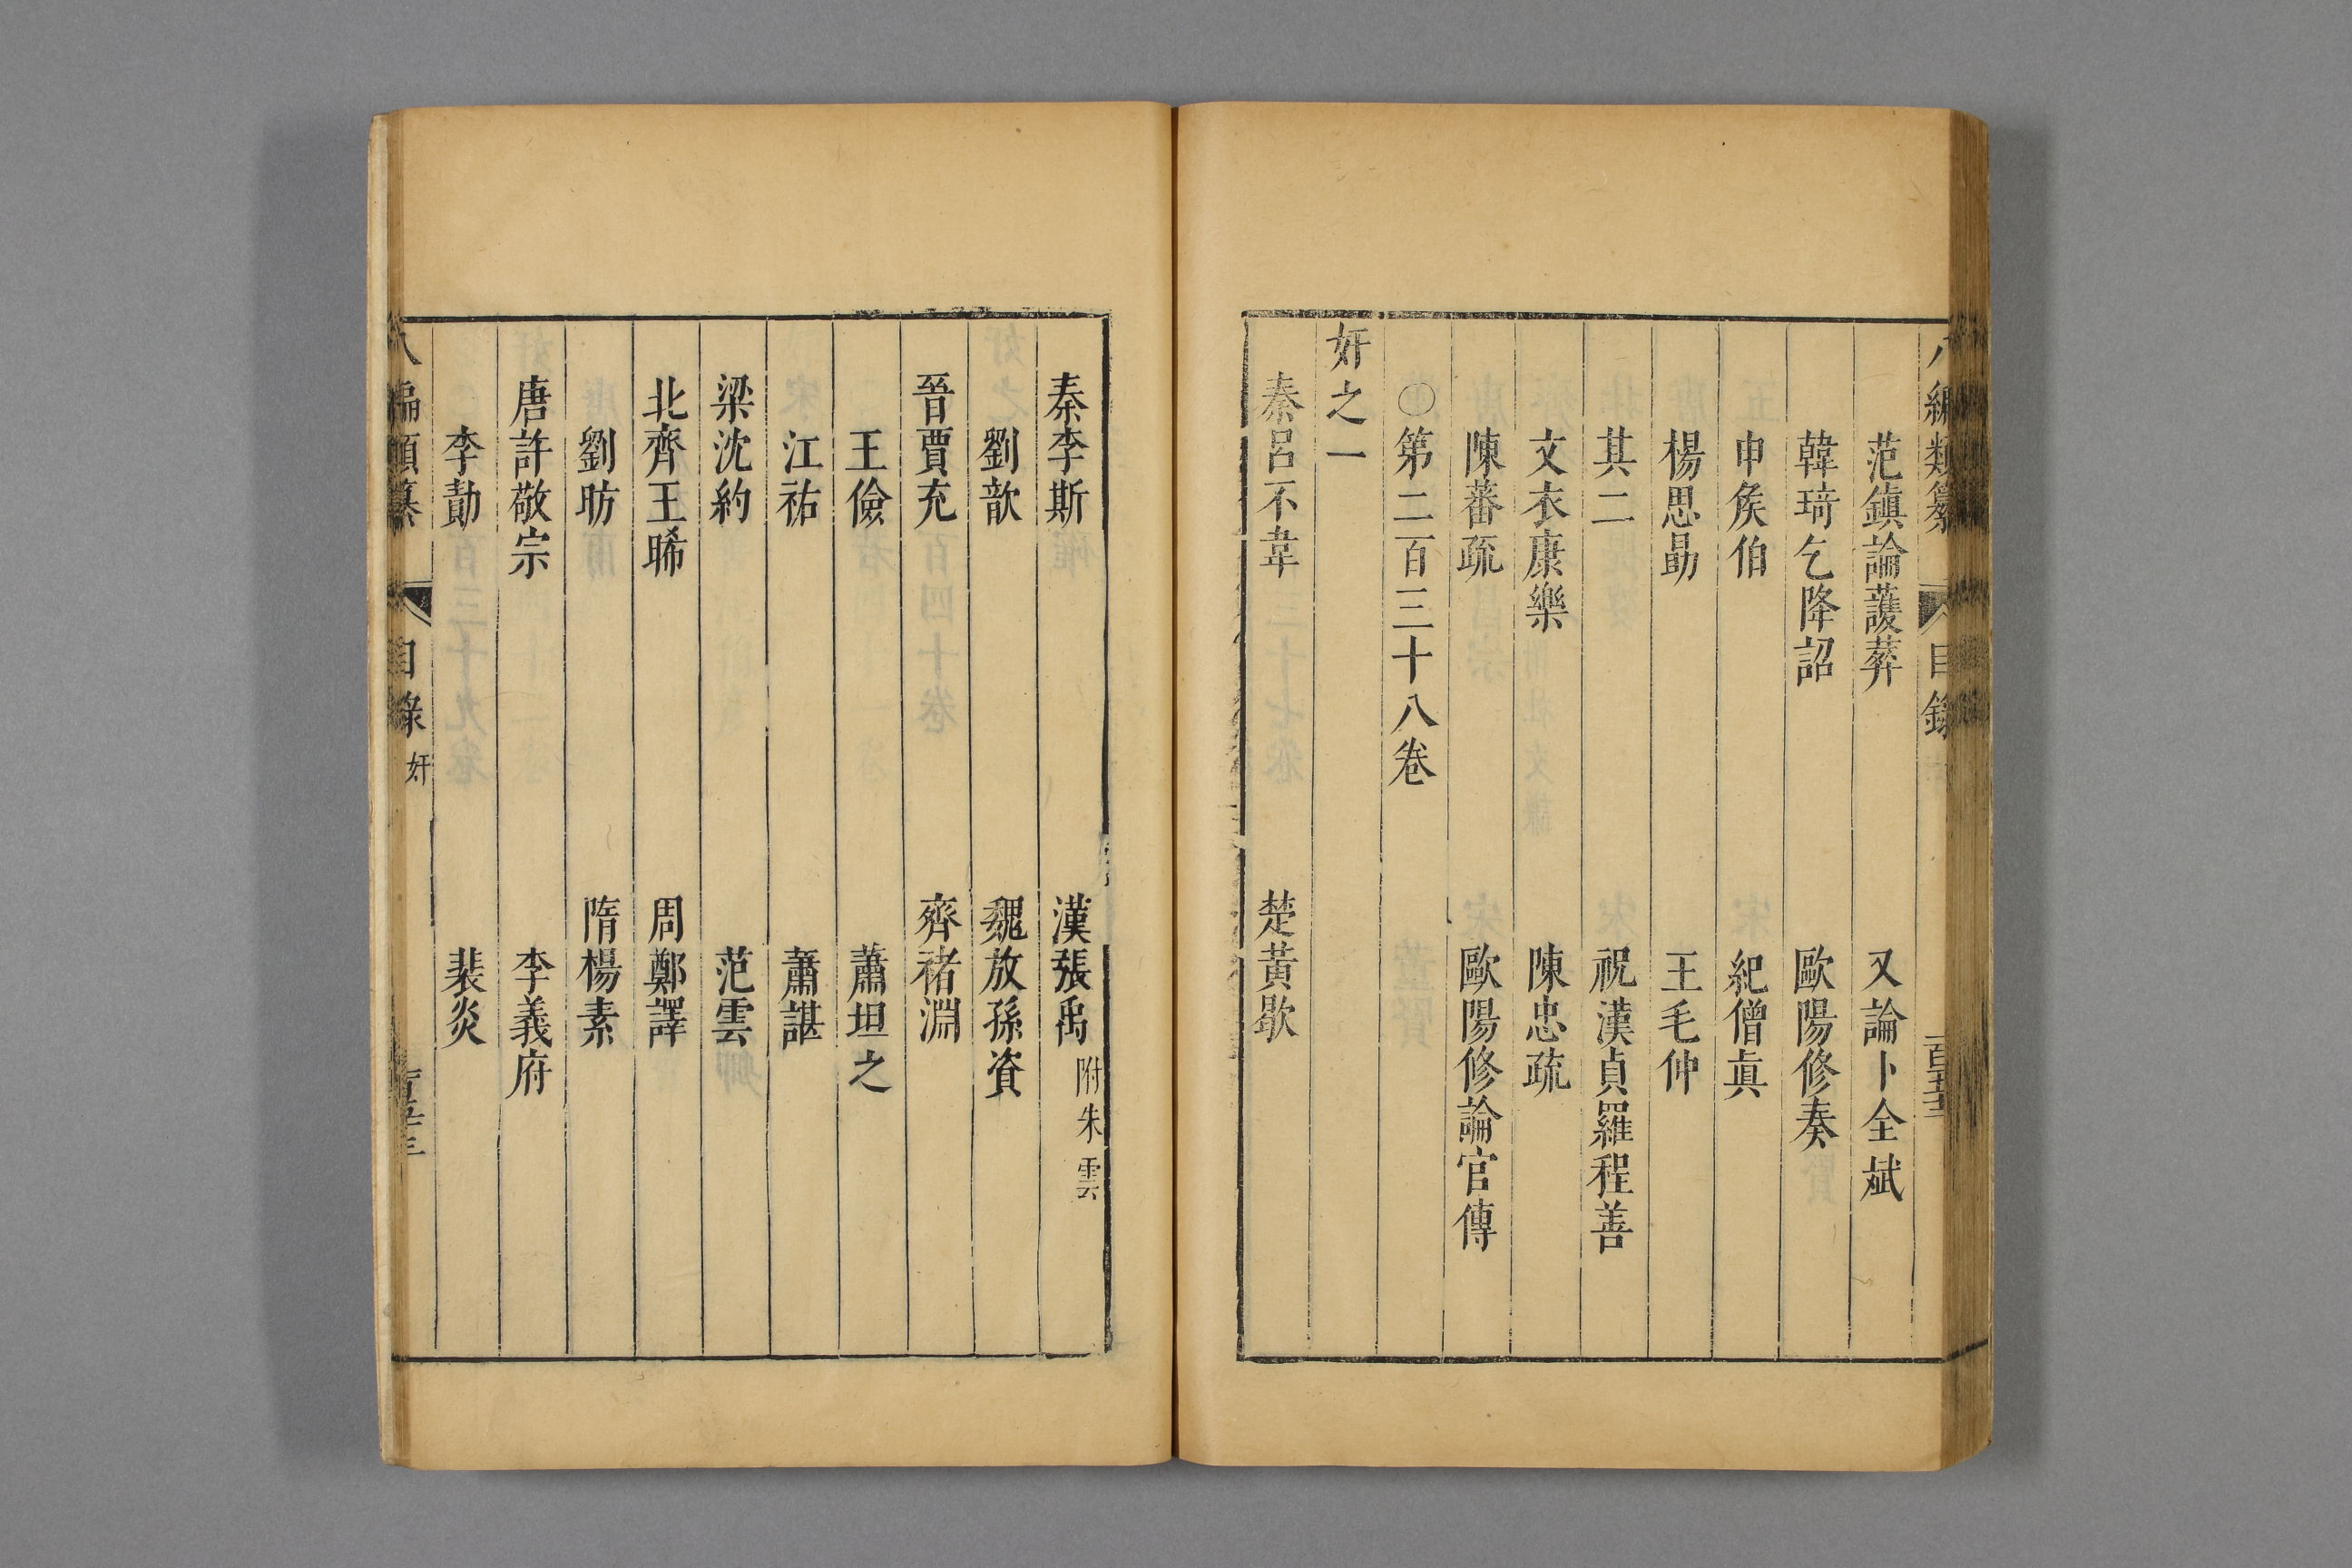 八編類纂 目錄
范鎮論護葬 又論卜全斌
韓琦乞降詔 歐陽修奏
申矦伯 紀僧眞
楊思勗 王毛仲
其二 祝漢貞羅程善
文衣康樂 陳忠疏
陳蕃疏 歐陽修論官傳
○第二百三十八卷
奸之一
秦呂不韋 楚黃歇
秦李斯 漢張禹附朱雲
劉歆 魏放孫資
晉賈充 齊褚淵
王儉 蕭坦之
江祐 蕭諶
梁沈約 范雲
北齊王晞 周鄭譯
劉昉 隋楊素
唐許敬宗 李義府
李勣 裴炎
八編類纂 目錄 奸